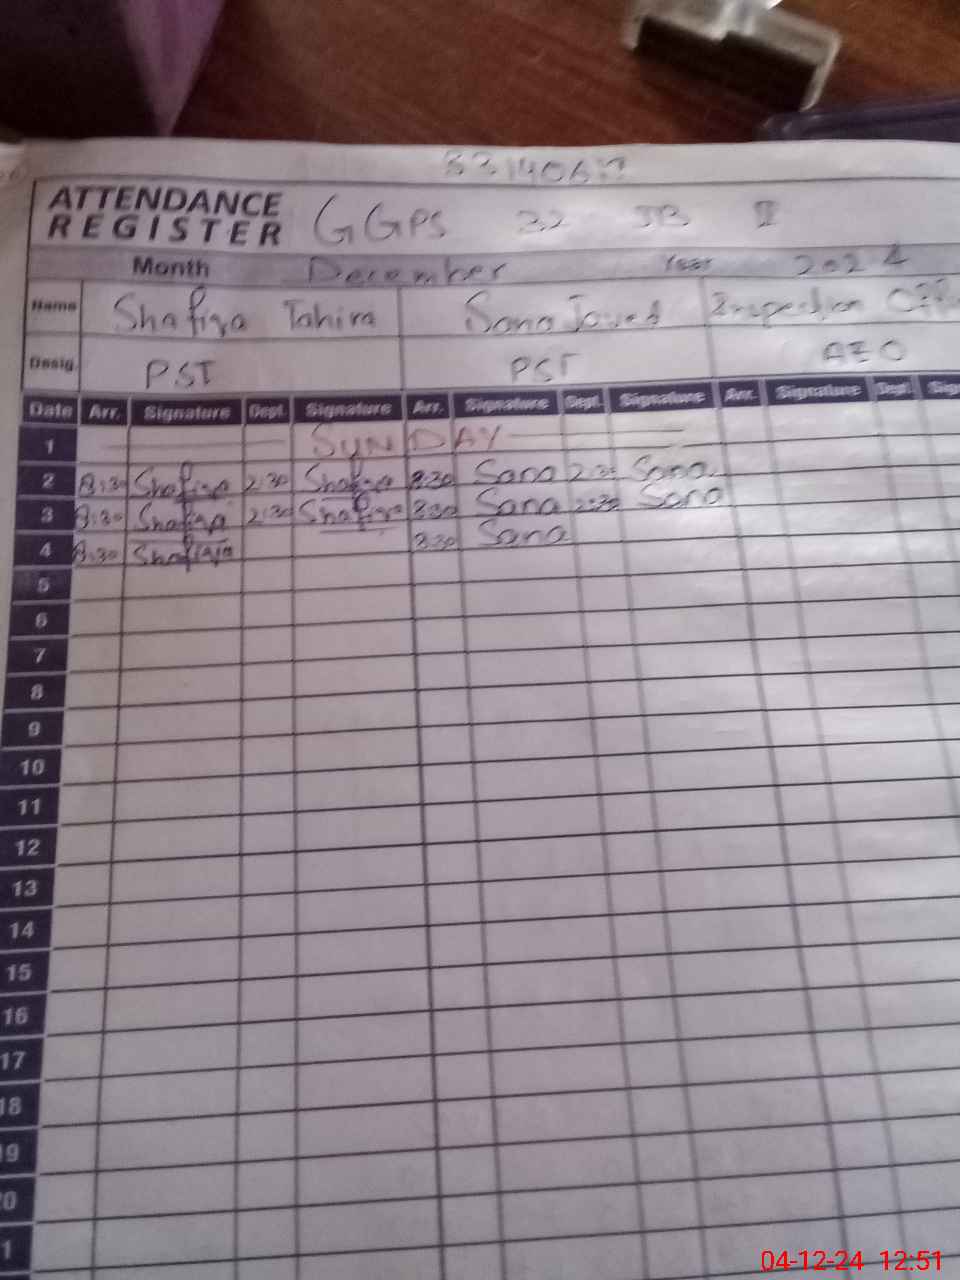 ATTENDANCE
REGISTER GGPS 32 JB II
Month December Year 2024
Name Shafiqa Tahira Sana Javed Inspection
Desig. PST PST AEO
Date Arr. Signature Dept. Signature Arr. Signature Dept. Signature Arr. Signature Dept. Sig
1 SUNDAY
2 8:30 Shafiqa 2:30 Shafiqa 8:30 Sana 2:30 Sana
3 8:30 Shafiqa 2:30 Shafiqa 8:30 Sana 2:30 Sana
4 8:30 Shafiqa 8:30 Sana
5
6
7
8
9
10
11
12
13
14
15
16
17
18
9
0
1
04-12-24 12:51